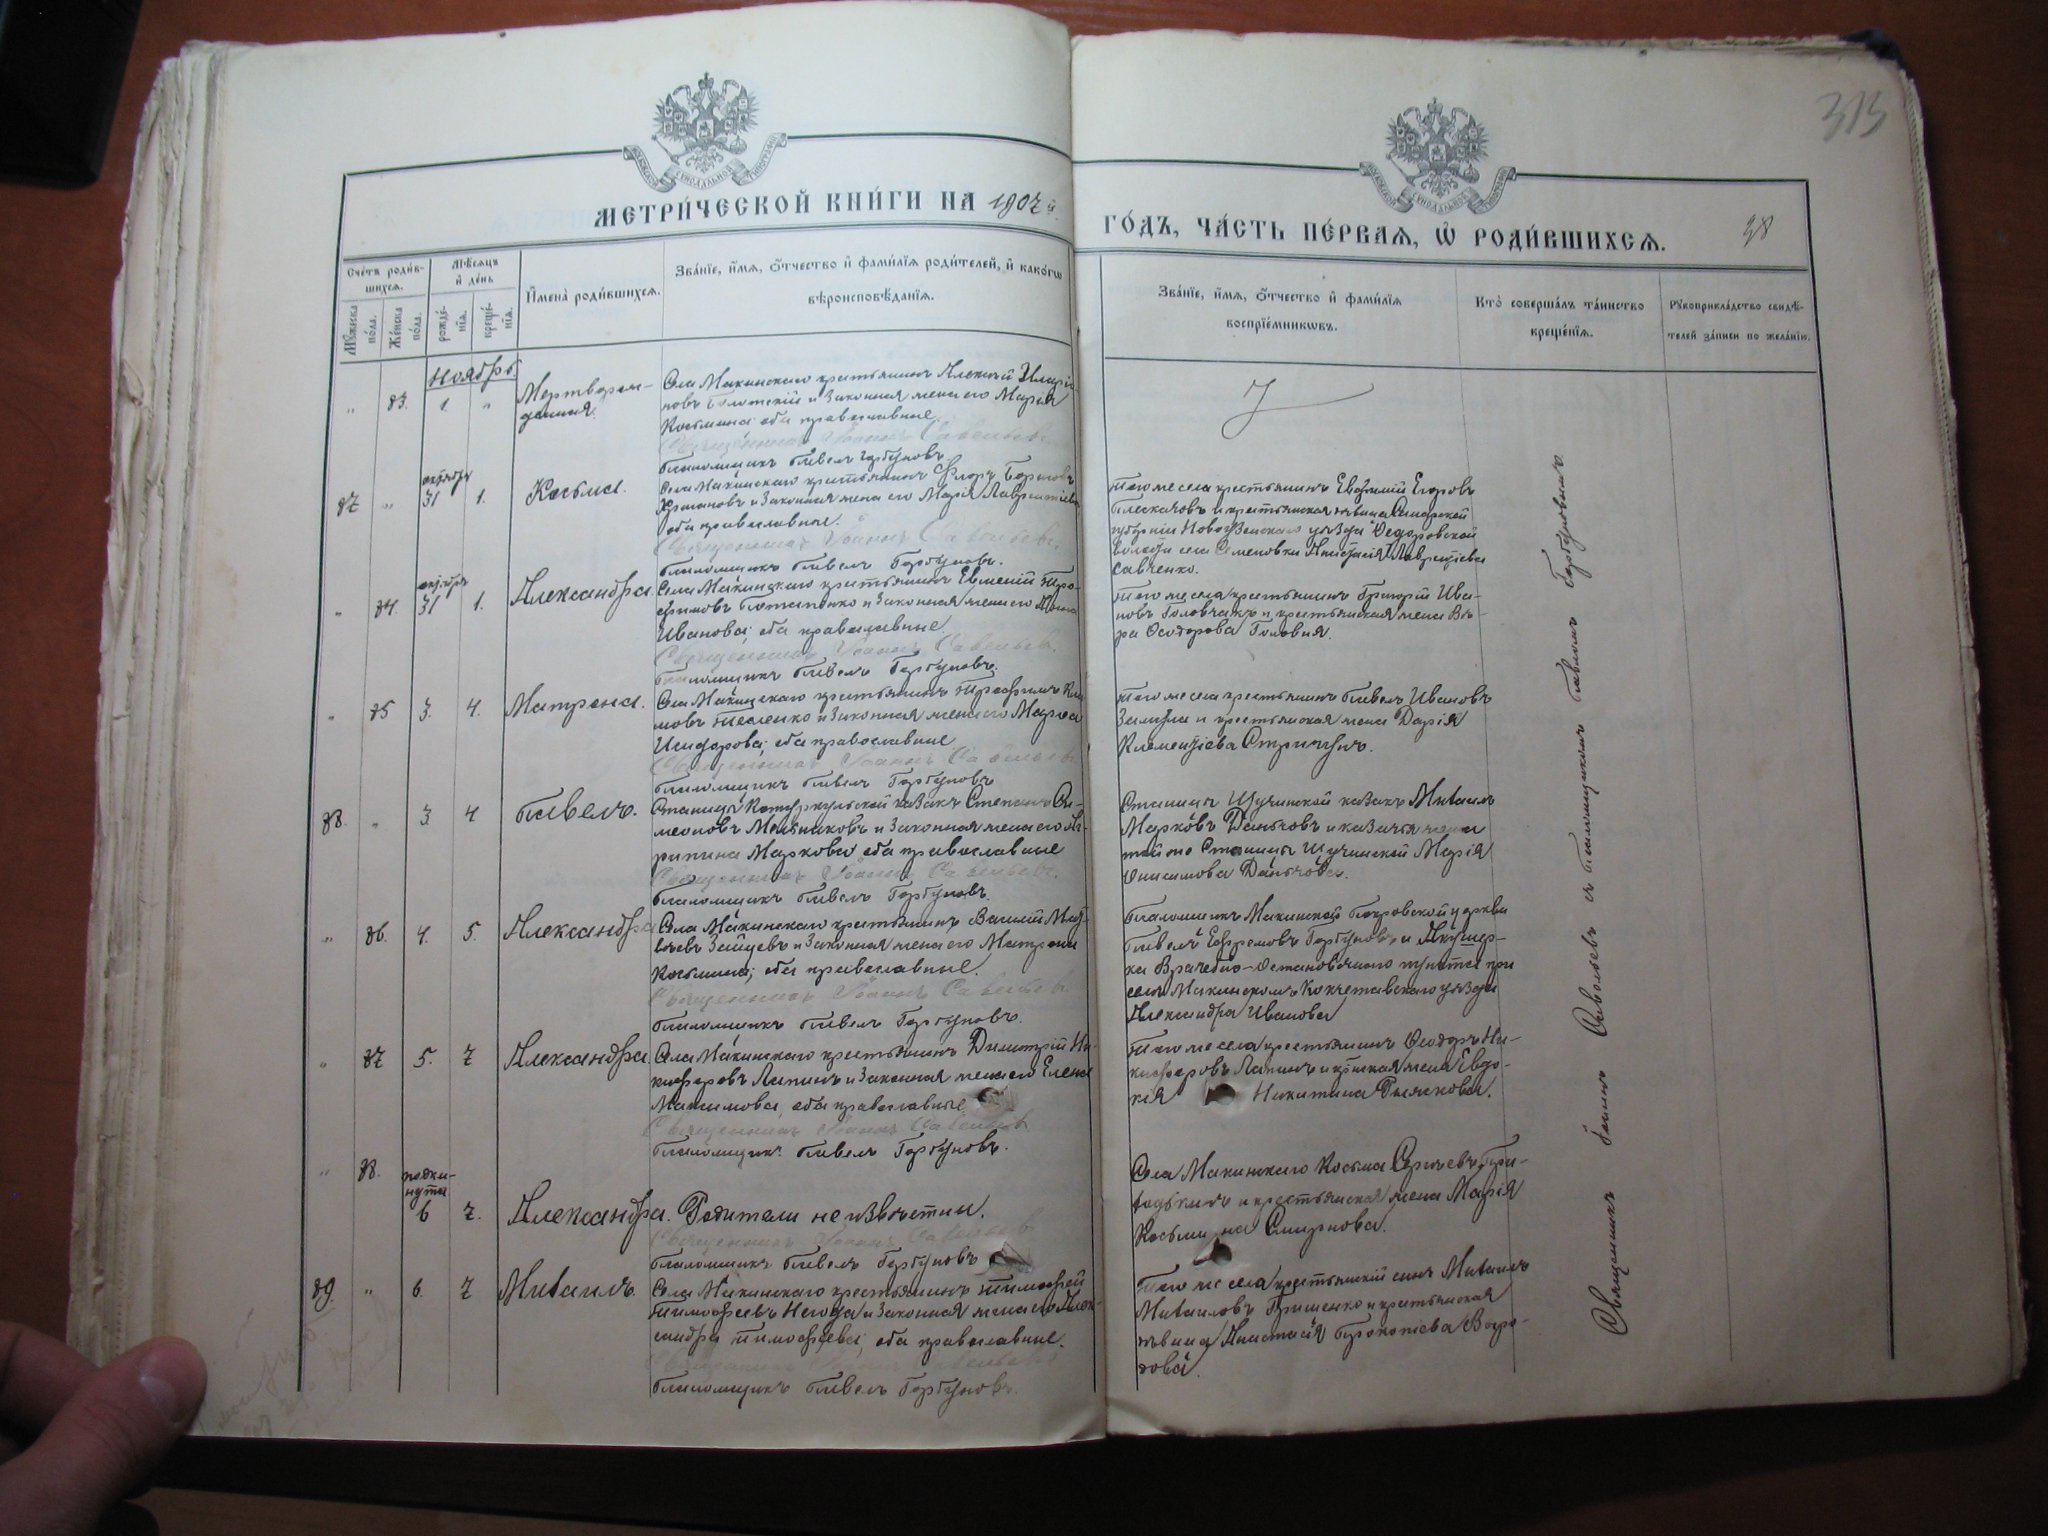 315
МЕТРИ́ЧЕСКОЙ КНИ́ГИ НА 1907 й.
ГО́ДЪ, ЧА́СТЬ ПЕ́РВАѦ, Ѡ҆ РОДИ́ВШИХСѦ.
98
Сче́тъ роди́в-
шихсѧ.
Мѣ́сѧцъ
и҆ де́нь
И҆мена̀ роди́вшихсѧ.
Зва́нїе, и҆́мѧ, ѻ҆́тчество и҆ фами́лїѧ роди́телей, и҆ како́гѡ
вѣроисповѣ́данїѧ.
Мꙋ́жеска
по́ла.
Же́нска
по́ла.
рожде́-
нїѧ.
креще́-
нїѧ.
Зва́нїе, и҆́мѧ, ѻ҆́тчество и҆ фами́лїѧ
воспрїе́мникѡвъ.
Кто̀ соверша́лъ та́инство
креще́нїѧ.
Рꙋкоприкла́дство свидѣ́-
телей за́писи по жела́нїю.
Ноябрь
" 83. 1. " Мертворож-
денная.
Села Макинскаго крестьянинъ Алексѣй Иларіо-
новъ и законная жена его Марія
Косьмина оба православные.
Священникъ Іоаннъ Савельевъ
Псаломщикъ Павелъ Горбуновъ.
87 " октября 31 1. Косьма.
Села Макинскаго крестьянинъ Флоръ Борисовъ
и законная жена его Марія Лаврентіева
оба православные.
Священникъ Іоаннъ Савельевъ.
Псаломщикъ Павелъ Горбуновъ.
Того же села крестьянинъ Евфимій Егоровъ
Плескачовъ и крестьянская дѣвица Самарской
губерніи Новоузенскаго уѣзда Ѳедоровской
волости села Семеновки Анастасія Лаврентіева
Савченко.
" 84. октября 31 1. Александра.
Села Макинскаго крестьянинъ Евменій Тро-
фимовъ Потапенко и законная жена его Анна
Иванова; оба православные.
Священникъ Іоаннъ Савельевъ.
Псаломщикъ Павелъ Горбуновъ.
Того же села крестьянинъ Григорій Ива-
новъ Головчакъ и крестьянская жена Вѣ-
ра Ѳеодорова Головня.
" 85 3. 4. Матрона.
Села Макинскаго крестьянинъ Трофимъ Кли-
мовъ Тесленко и законная жена его Марѳа
Исидорова; оба православные.
Священникъ Іоаннъ Савельевъ
Псаломщикъ Павелъ Горбуновъ
Того же села крестьянинъ Павелъ Ивановъ
и крестьянская жена Дарія
Климентіева
88. " 3. 4 Павелъ.
Станицы Котуркульской казакъ Степанъ Си-
меоновъ Мельниковъ и законная жена его Аг-
рипина Маркова оба православные
Священникъ Іоаннъ Савельевъ.
Псаломщикъ Павелъ Горбуновъ.
Станицы Щучинской казакъ Михаилъ
Марковъ Даньчовъ и казачья жена
той же станицы Щучинской Марія
Онисимова Даньчова.
" 86. 4. 5. Александра
Села Макинскаго крестьянинъ Василій Мат-
вѣевъ Зайцевъ и законная жена его Матрона
Косьмина; оба православные.
Священникъ Іоаннъ Савельевъ
Псаломщикъ Павелъ Горбуновъ.
Псаломщикъ Макинской Покровской церкви
Павелъ Ефремовъ Горбуновъ и Акушер-
ка Врачебно-Остановочнаго пункта при
селѣ Макинскомъ Кокчетавскаго уѣзда
Александра Иванова
" 87 5. 7 Александра
Села Макинскаго крестьянинъ Димитрій Ни-
кифоровъ Лапинъ и законная жена его Елена
Максимова, оба православные
Священникъ Іоаннъ Савельевъ
Псаломщикъ Павелъ Горбуновъ.
Того же села крестьянинъ Ѳеодоръ Ни-
кифоровъ Лапинъ и кр̃ская жена Евдо-
кія Никитина
" 88. подки-
нута
6 7. Александра. Родители не извѣстны.
Священникъ Іоаннъ Савельевъ
Псаломщикъ Павелъ Горбуновъ
Села Макинскаго Косьма Сергѣевъ
и крестьянская жена Марія
Косьмина Смирнова.
89. " 6. 7 Михаилъ.
Села Макинскаго крестьянинъ Тимофей
Тимофеевъ Негода и законная жена его Алек-
сандра Тимофеева; оба православные.
Священникъ Іоаннъ Савельевъ
Псаломщикъ Павелъ Горбуновъ.
Того же села крестьянскій сынъ Михаилъ
Михаиловъ Гришенко и крестьянская
дѣвица Анастасія Прокопіева
Священникъ Іоаннъ Савельевъ съ псаломщикомъ Павломъ Горбуновымъ